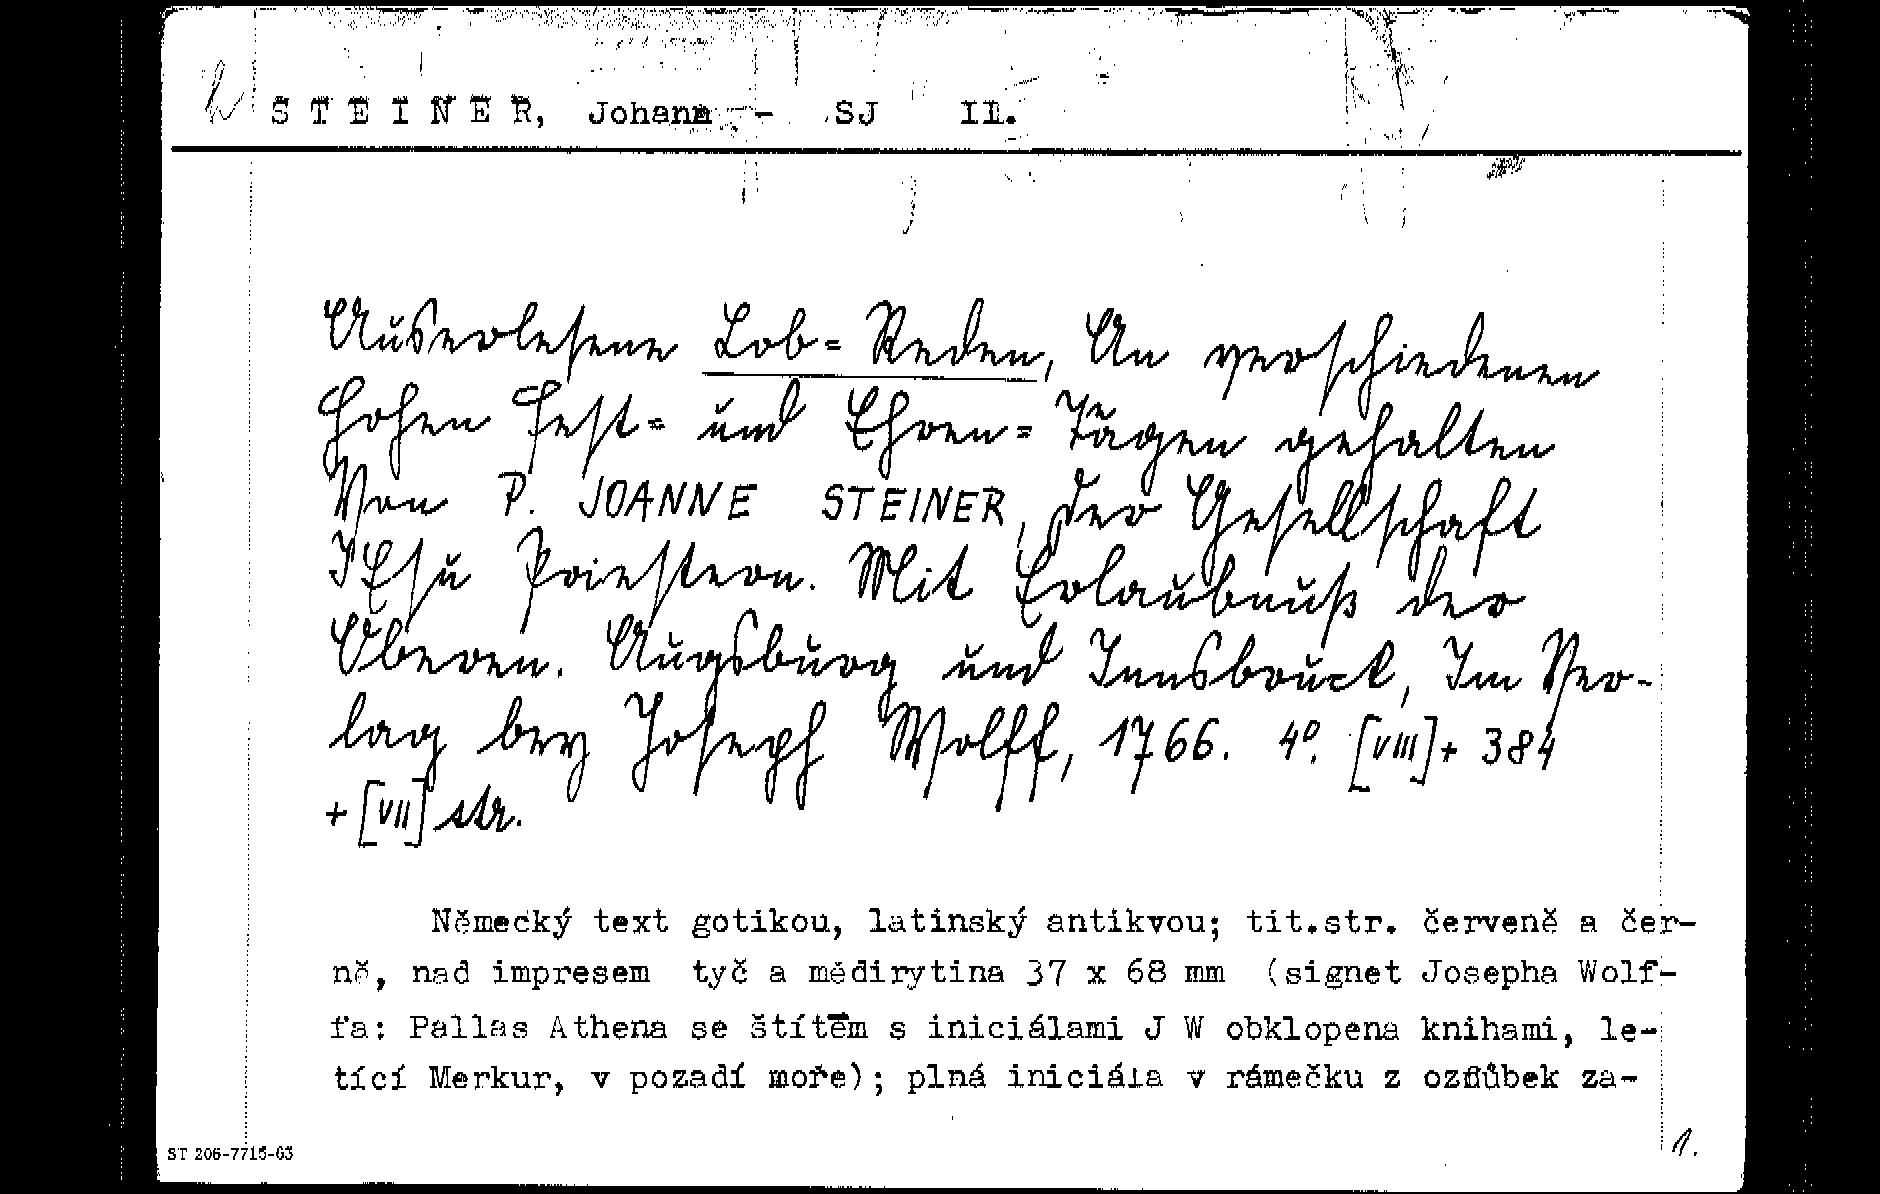 S T E I N E R, Johann - SJ II.
Auserlesene Lob= Reden, An verschiedenen
Hohen Fest= und Ehren= Tägen gehalten
Von P. JOANNE STEINER, der Gesellschaft
JEsu Priestern. Mit Erlaubnuß der
Oberen. Augsburg und Innsbruck, Im Ver-
lag bey Joseph Wolff, 1766. 4º. [VIII]+ 384
+ [VII] str.
Německý text gotikou, latinský antikvou; tit.str. červeně a čer-
ně, nad impresem tyč a mědirytina 37 x 68 mm (signet Josepha Wolf-
fa: Pallas Athena se štítem s iniciálami J W obklopena knihami, le-
tící Merkur, v pozadí moře); plná iniciála v rámečku z ozdůbek za-
ST 206-7715-63
1.